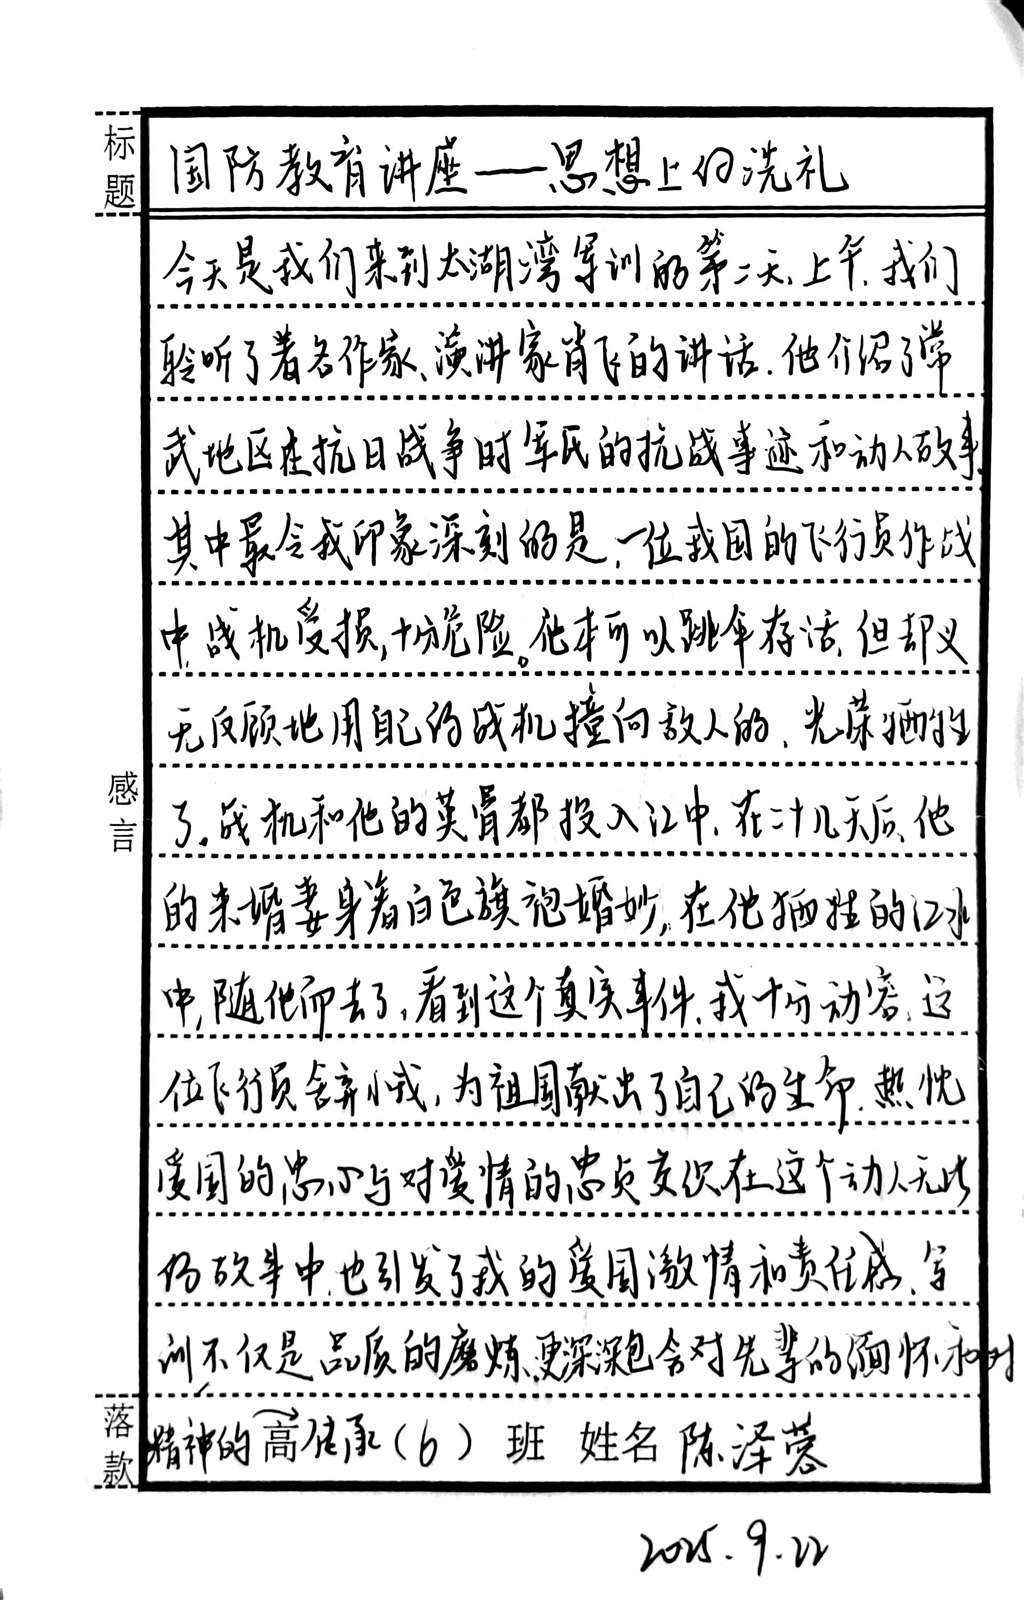 标题
国防教育讲座——思想上的洗礼
今天是我们来到太湖湾军训的第二天,上午,我们
聆听了著名作家、演讲家肖飞的讲话.他介绍了常
武地区在抗日战争时军民的抗战事迹和动人故事.
其中最令我印象深刻的是,一位我国的飞行员作战
中,战机受损,十分危险。他本可以跳伞存活,但却义
无反顾地用自己的战机撞向敌人的,光荣牺牲
了。战机和他的英骨都投入江中,在二十几天后,他
的未婚妻身着白色旗袍婚纱,在他牺牲的江水
中,随他而去了,看到这个真实事件,我十分动容,这
位飞行员舍弃小我,为祖国献出了自己的生命.热忱
爱国的忠心与对爱情的忠贞交织在这个动人无比
的故事中,也引发了我的爱国激情和责任感,军
训不仅是品质的磨炼,更深深包含对先辈的缅怀和对
感言
落款
精神的高传承(6)班 姓名 陈泽蓉
2025.9.22